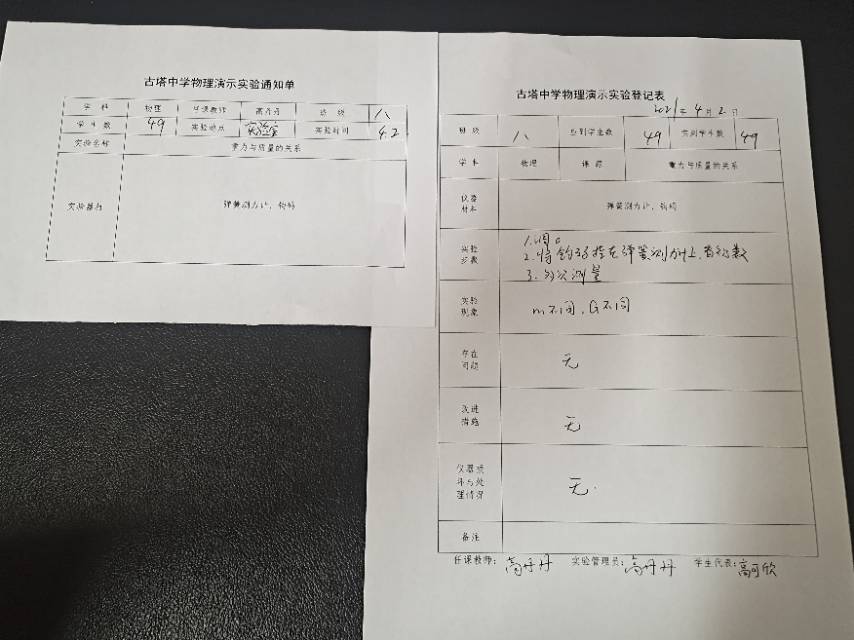 古塔中学物理演示实验通知单
学科 物理 任课教师 高丹丹 班级 八
学生数 49 实验地点 实验室 实验时间 4.2
实验名称 重力与质量的关系
实验器材 弹簧测力计、钩码
古塔中学物理演示实验登记表
2021年4月2日
班级 八 应到学生数 49 实到学生数 49
学科 物理 课题 重力与质量的关系
仪器
材料
弹簧测力计、钩码
实验
步骤
1.调0
2.将钩码挂在弹簧测力计上,看初数
3.多次测量
实验
现象
m不同,G不同
存在
问题
无
改进
措施
无
仪器损
坏与处
理情况
无.
备注
任课教师: 高丹丹 实验管理员: 高丹丹 学生代表: 高可欣